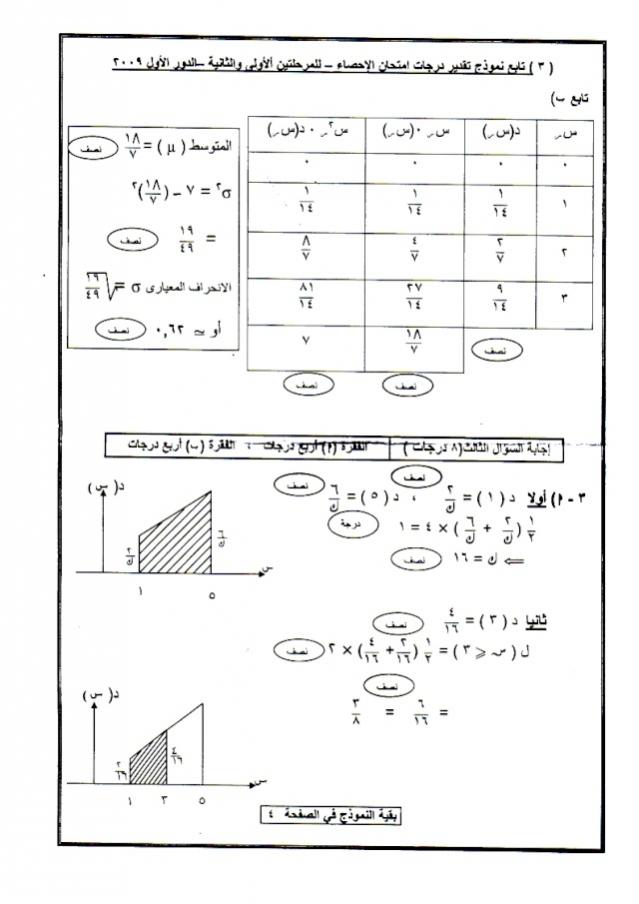 ( ٣ ) تابع نموذج تقدير درجات امتحان الإحصاء – للمرحلتين الأولى والثانية –الدور الأول ٢٠٠٩
تابع ب)
س ر د(س ر) س ر ٠ د(س ر) س٢ ر ٠ د(س ر)
٠ ٠ ٠ ٠
١ ١/١٤ ١/١٤ ١/١٤
٢ ٢/٧ ٤/٧ ٨/٧
٣ ٩/١٤ ٢٧/١٤ ٨١/١٤
نصف ١٨/٧ ٧
نصف نصف
المتوسط ( μ ) = ١٨/٧ نصف
σ٢ = ٧ – (١٨/٧)٢
= ١٩/٤٩ نصف
الانحراف المعيارى σ = √١٩/٤٩
أو ≃ ٠,٦٢ نصف
إجابة السؤال الثالث(٨ درجات ) الفقرة (م) أربع درجات ، الفقرة (ب) أربع درجات
٣ - م) أولا د ( ١ ) = ٢/ك نصف ، د ( ٥ ) = ٦/ك نصف
١/٢ (٢/ك + ٦/ك) × ٤ = ١ درجة
⇐ ك = ١٦ نصف
د( س )
٢/ك ٦/ك
١ ٥ س
ثانيا د ( ٣ ) = ٤/١٦ نصف
ل ( س ⩽ ٣ ) = ١/٢ (٢/١٦ + ٤/١٦) × ٢ نصف
= ٦/١٦ = ٣/٨ نصف
د( س )
٢/١٦ ٤/١٦
١ ٣ ٥ س
بقية النموذج في الصفحة ٤